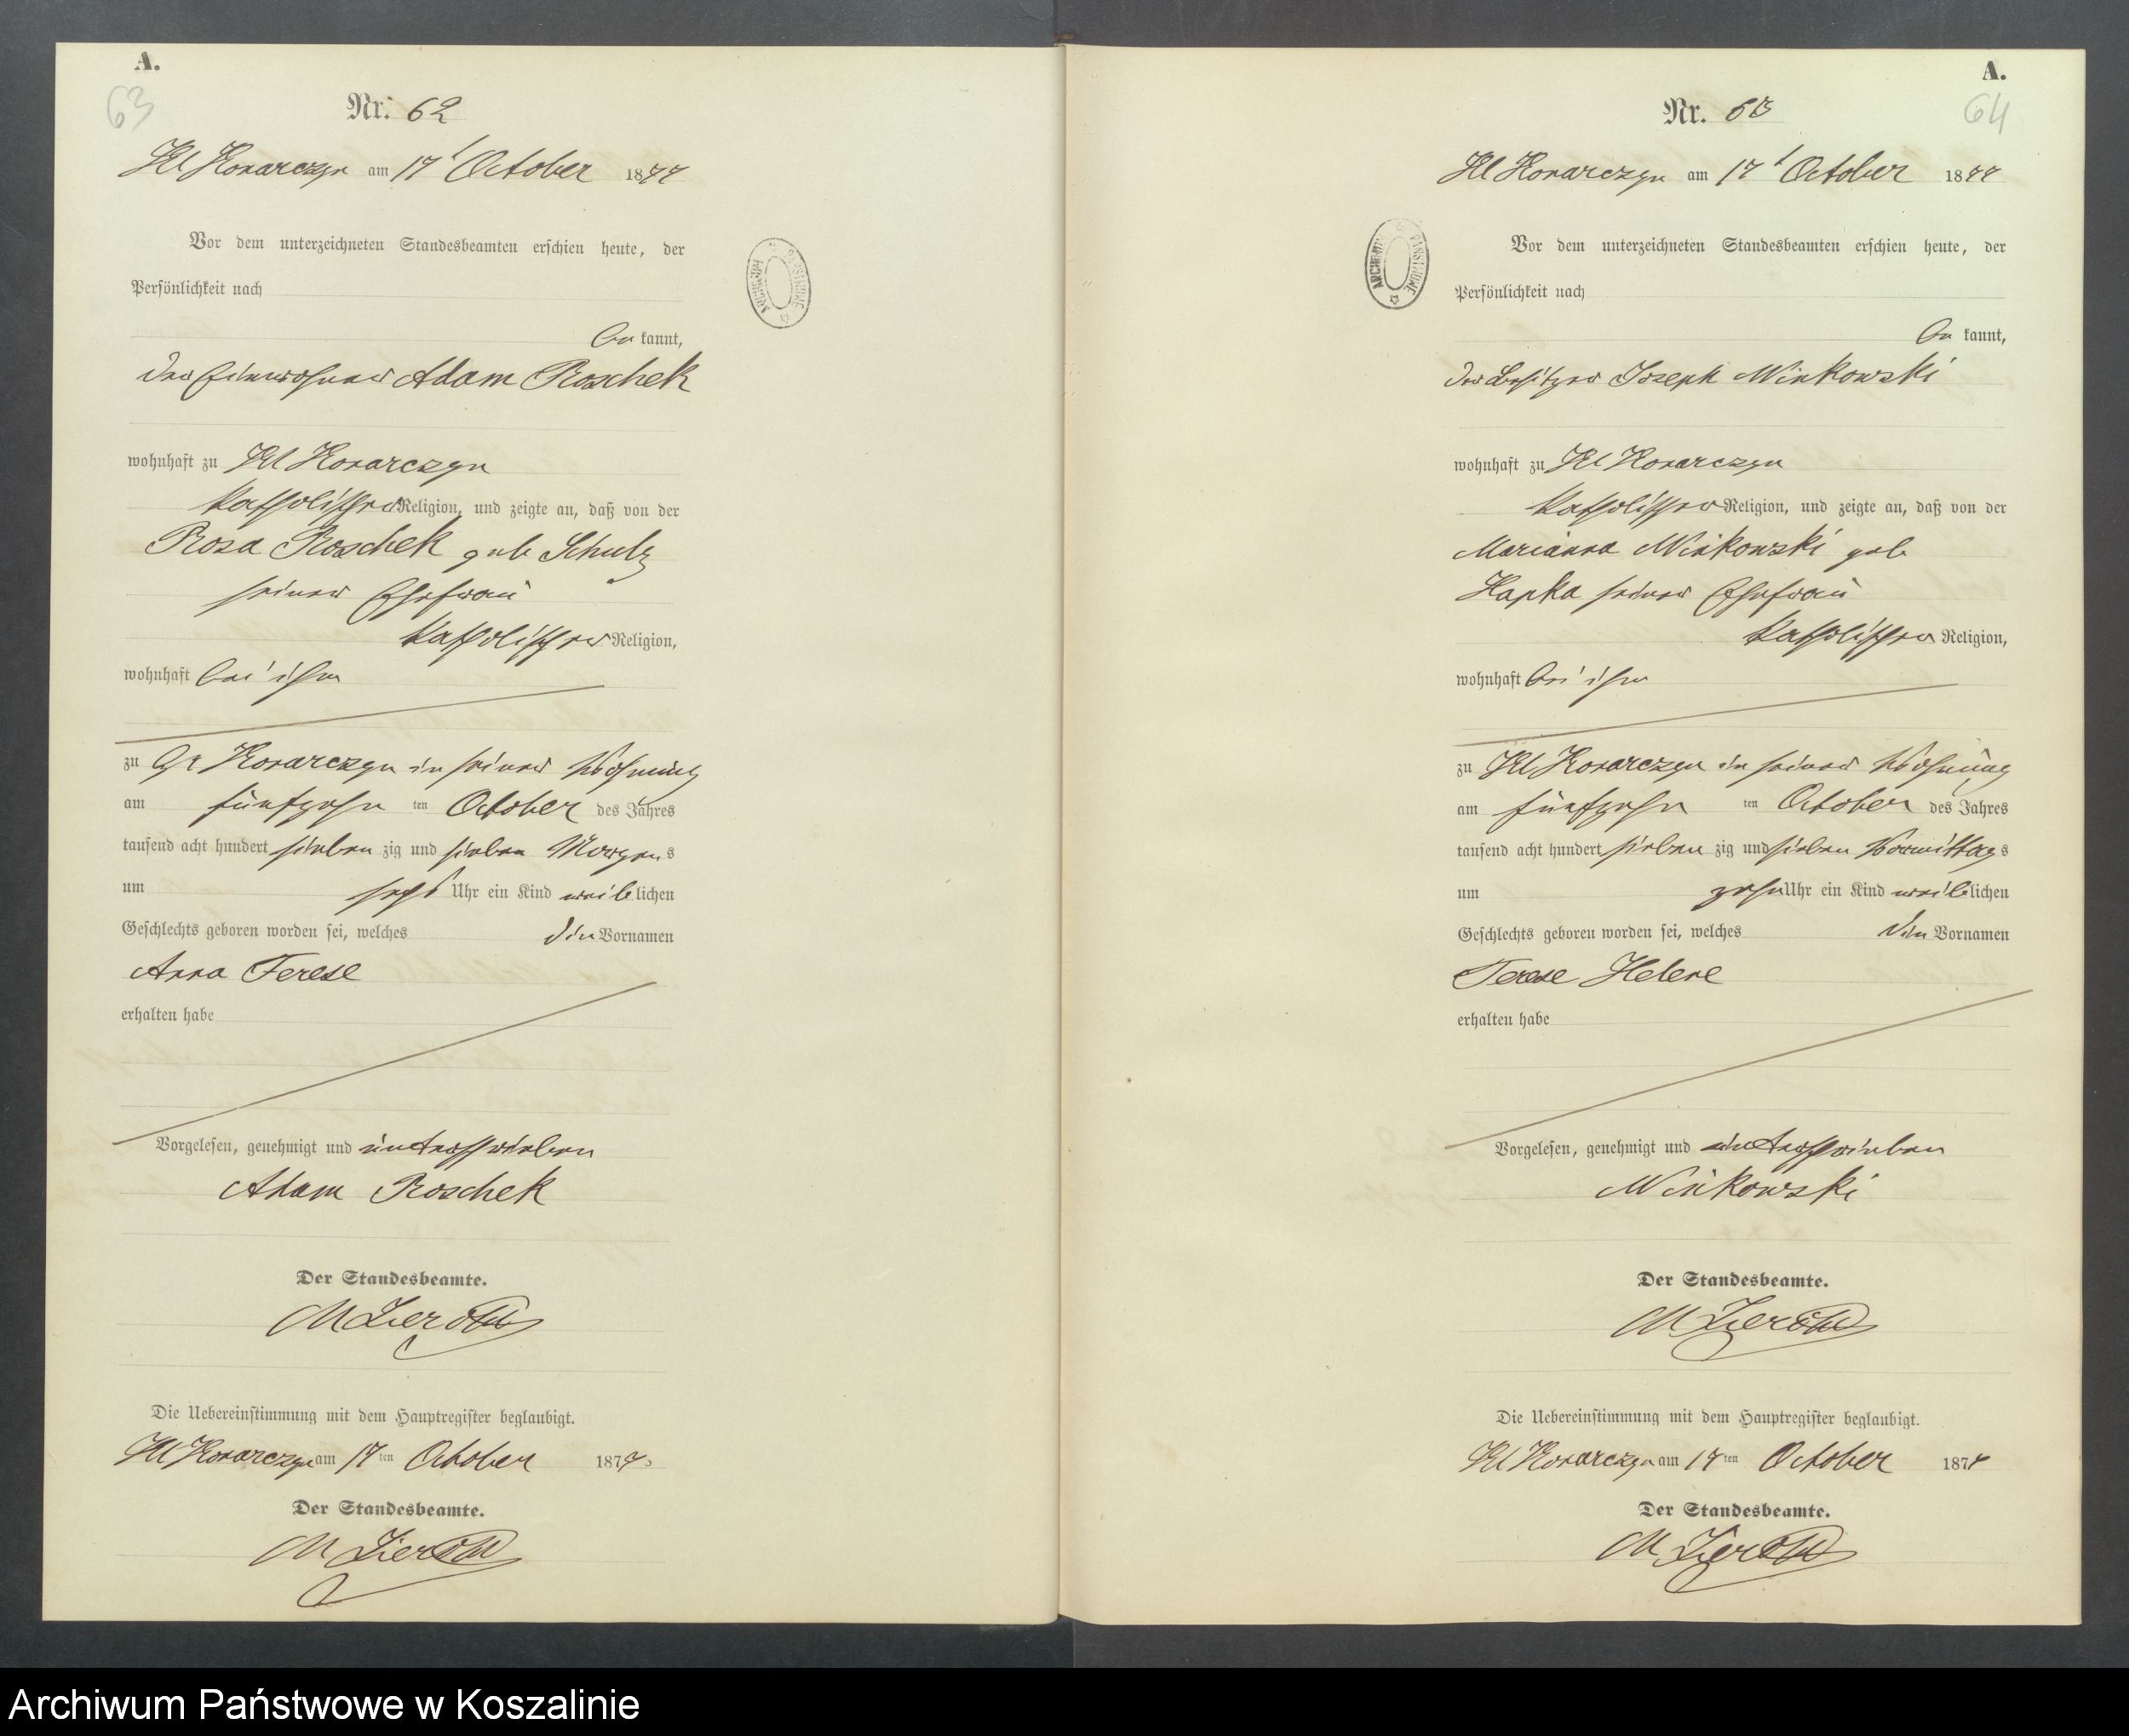 A.
63
Nr. 62
Kl Konarczyn am 17t October 1877
Vor dem unterzeichneten Standesbeamten erschien heute, der
Persönlichkeit nach
be kannt,
der Einwohner Adam Roschek
wohnhaft zu Kl Konarczyn
katholischer Religion, und zeigte an, daß von der
Rosa Roschek geb Schulz
seiner Ehefrau
katholischer Religion,
wohnhaft bei ihm
zu Gr Konarczyn in seiner Wohnung
am fünfzehn ten October des Jahres
tausend acht hundert sieben zig und sieben Morgens
um sechs Uhr ein Kind weiblichen
Geschlechts geboren worden sei, welches die Vornamen
Anna Terese
erhalten habe
Vorgelesen, genehmigt und unterschrieben
Adam Roschek
Der Standesbeamte.
Die Uebereinstimmung mit dem Hauptregister beglaubigt.
Kl Konarczyn am 17ten October 1877
Der Standesbeamte.
ARCHIWUM PAŃSTWOWE
A.
64
Nr. 63
Kl Konarczyn am 17t October 1877
Vor dem unterzeichneten Standesbeamten erschien heute, der
Persönlichkeit nach
be kannt,
der Besitzer Joseph Minkowski
wohnhaft zu Kl Konarczyn
katholischer Religion, und zeigte an, daß von der
Marianna Minkowski geb
Hapka seiner Ehefrau
katholischer Religion,
wohnhaft bei ihm
zu Kl Konarczyn in seiner Wohnung
am fünfzehn ten October des Jahres
tausend acht hundert sieben zig und sieben Vormittags
um zehn Uhr ein Kind weiblichen
Geschlechts geboren worden sei, welches die Vornamen
Terese Helene
erhalten habe
Vorgelesen, genehmigt und unterschrieben
Minkowski
Der Standesbeamte.
Die Uebereinstimmung mit dem Hauptregister beglaubigt.
Kl Konarczyn am 17ten October 1877
Der Standesbeamte.
ARCHIWUM PAŃSTWOWE
Archiwum Państwowe w Koszalinie